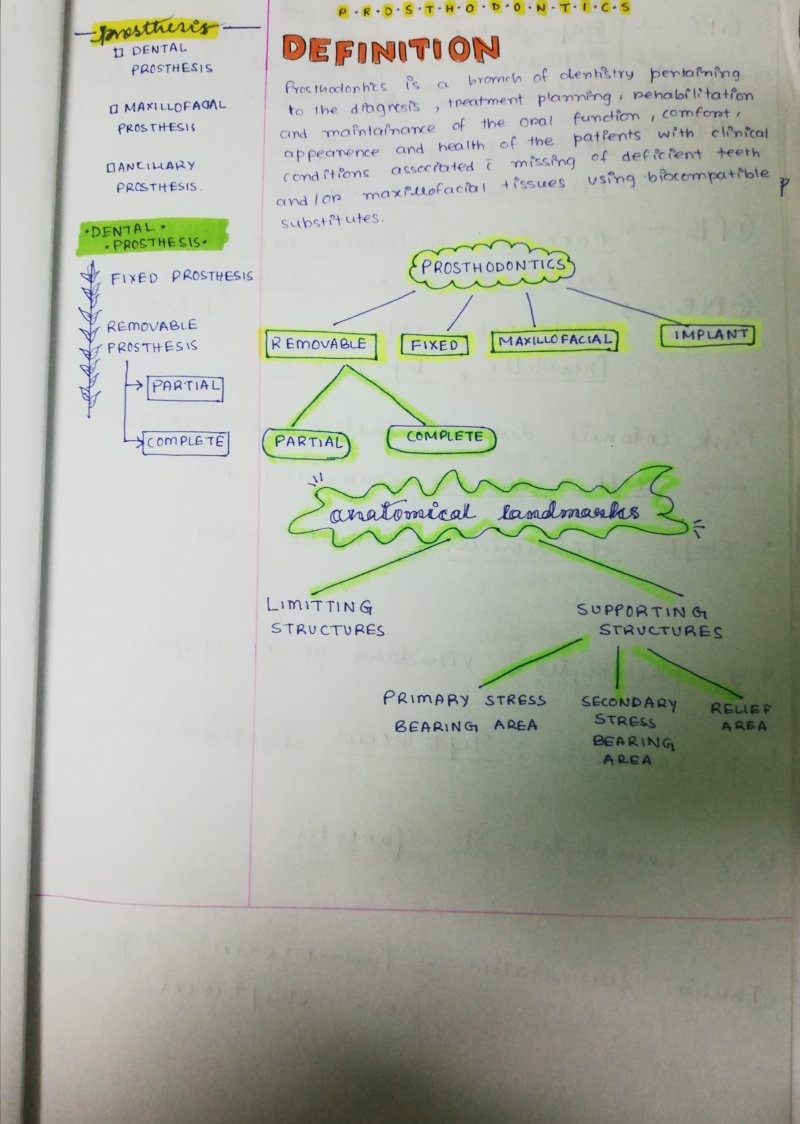 P.R.O.S.T.H.O.D.O.N.T.I.C.S
Prosthesis
DENTAL
PROSTHESIS
MAXILLOFACIAL
PROSTHESIS
ANCILLARY
PROSTHESIS.
•DENTAL•
•PROSTHESIS•
FIXED PROSTHESIS
REMOVABLE
PROSTHESIS
PARTIAL
COMPLETE
DEFINITION
Prosthodontics is a branch of dentistry pertaining
to the diagnosis, treatment planning, rehabilitation
and maintainance of the oral function, comfort,
appearence and health of the patients with clinical
conditions associated c̄ missing of deficient teeth
and/or maxillofacial tissues using biocompatible
substitutes.
PROSTHODONTICS
REMOVABLE FIXED MAXILLOFACIAL IMPLANT
PARTIAL COMPLETE
anatomical landmarks
LIMITTING
STRUCTURES
SUPPORTING
STRUCTURES
PRIMARY STRESS
BEARING AREA
SECONDARY
STRESS
BEARING
AREA
RELIEF
AREA